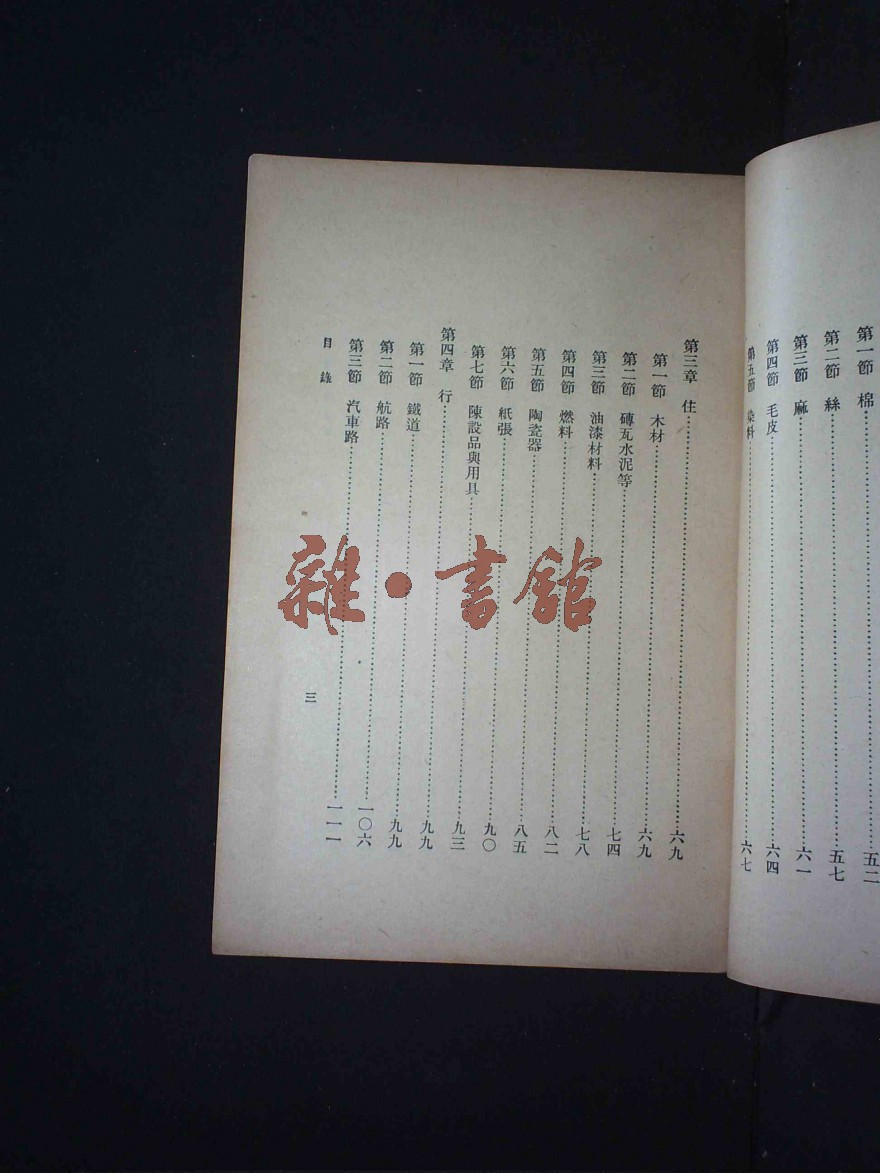 第一節 棉……五二
第二節 絲……五七
第三節 麻……六一
第四節 毛皮……六四
第五節 染料……六七
第三章 住……六九
第一節 木材……六九
第二節 磚瓦水泥等……七四
第三節 油漆材料……七八
第四節 燃料……八二
第五節 陶瓷器……八五
第六節 紙張……九〇
第七節 陳設品與用具……九三
第四章 行……九九
第一節 鐵道……九九
第二節 航路……一〇六
第三節 汽車路……一一一
目錄 三
雜·書館